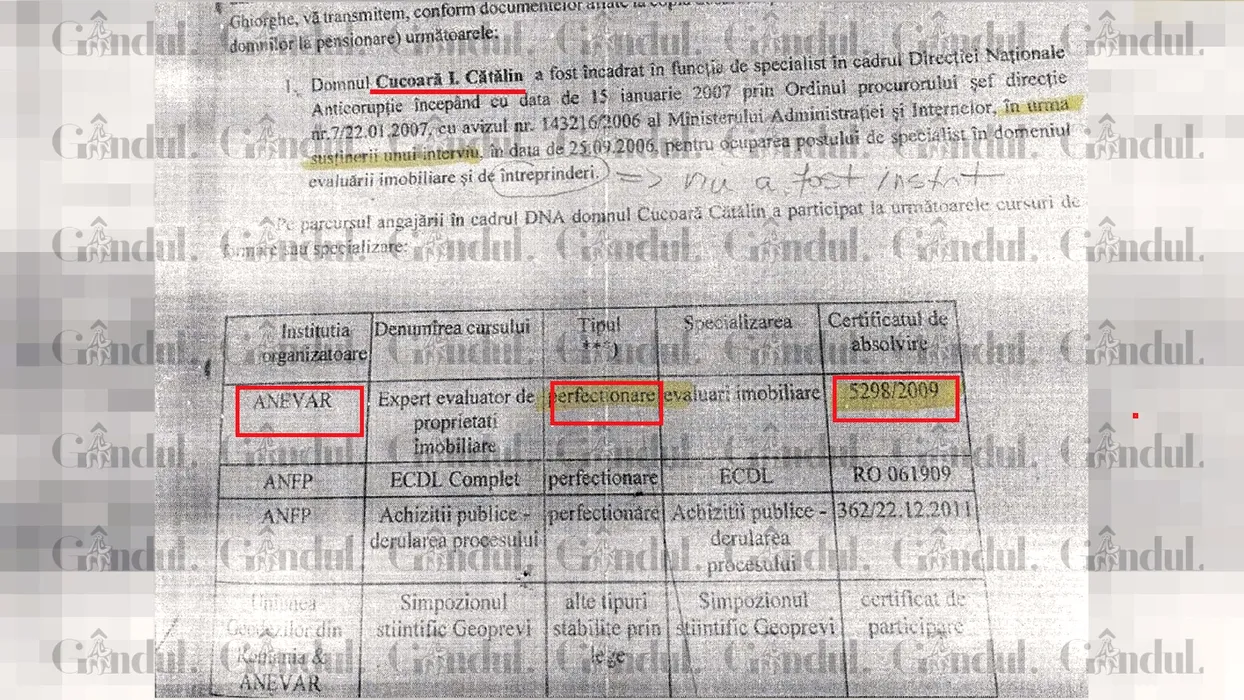 Ghiorghe, vă transmitem, conform documentelor aflate la
domnilor la pensionare) următoarele:
1. Domnul Cucoară I. Cătălin a fost încadrat în funcția de specialist în cadrul Direcției Naționale
Anticorupție începând cu data de 15 ianuarie 2007 prin Ordinul procurorului șef direcție
nr.7/22.01.2007, cu avizul nr. 143216/2006 al Ministerului Administrației și Internelor, în urma
susținerii unui interviu, în data de 25.09.2006, pentru ocuparea postului de specialist în domeniul
evaluării imobiliare și de întreprinderi. => nu a fost
Pe parcursul angajării în cadrul DNA domnul Cucoară Cătălin a participat la următoarele cursuri de
formare sau specializare:
Institutia organizatoare Denumirea cursului Tipul **) Specializarea Certificatul de absolvire
ANEVAR Expert evaluator de proprietati imobiliare perfectionare evaluari imobiliare 5298/2009
ANFP ECDL Complet perfectionare ECDL RO 061909
ANFP Achizitii publice - derularea procesului perfectionare Achizitii publice - derularea procesului 362/22.12.2011
Uniunea Geodezilor din Romania & ANEVAR Simpozionul stiintific Geoprevi alte tipuri stabilite prin lege Simpozionul stiintific Geoprevi certificat de participare
Gândul.